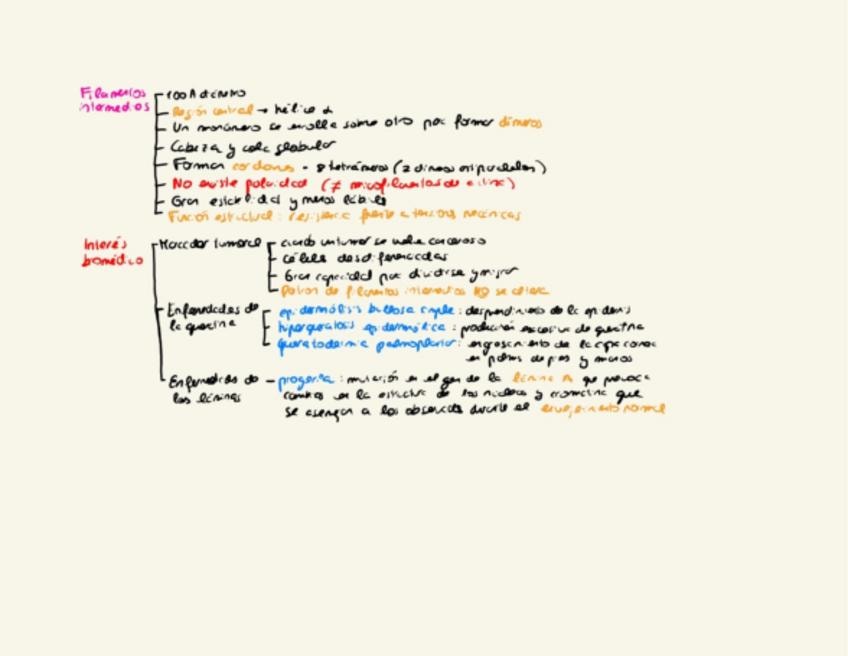 Filamentos intermedios
100 Å diámetro
Región central → hélice α
Un monómero se enrolla sobre otro para formar dímeros
Cabeza y cola globular
Forman cordones - 8 tetrámeros (2 dímeros antiparalelos)
No existe polaridad (≠ microfilamentos de actina)
Gran estabilidad y menos lábiles
Función estructural: resistencia frente a tensiones mecánicas
Interés biomédico
Marcador tumoral
cuando un tumor se vuelve canceroso
células desdiferenciadas
Gran capacidad para dividirse y migrar
Patrón de filamentos intermedios NO se altera
Enfermedades de la queratina
epidermólisis bullosa simple: desprendimiento de la epidermis
hiperqueratosis epidermolítica: producción excesiva de queratina
queratodermia palmoplantar: engrosamiento de la capa cornea
en palmas de pies y manos
Enfermedades de las láminas
progeria: mutación en el gen de la lámina A que provoca
cambios en la estructura de los núcleos y cromatina que
se asemejan a los observados durante el envejecimiento normal